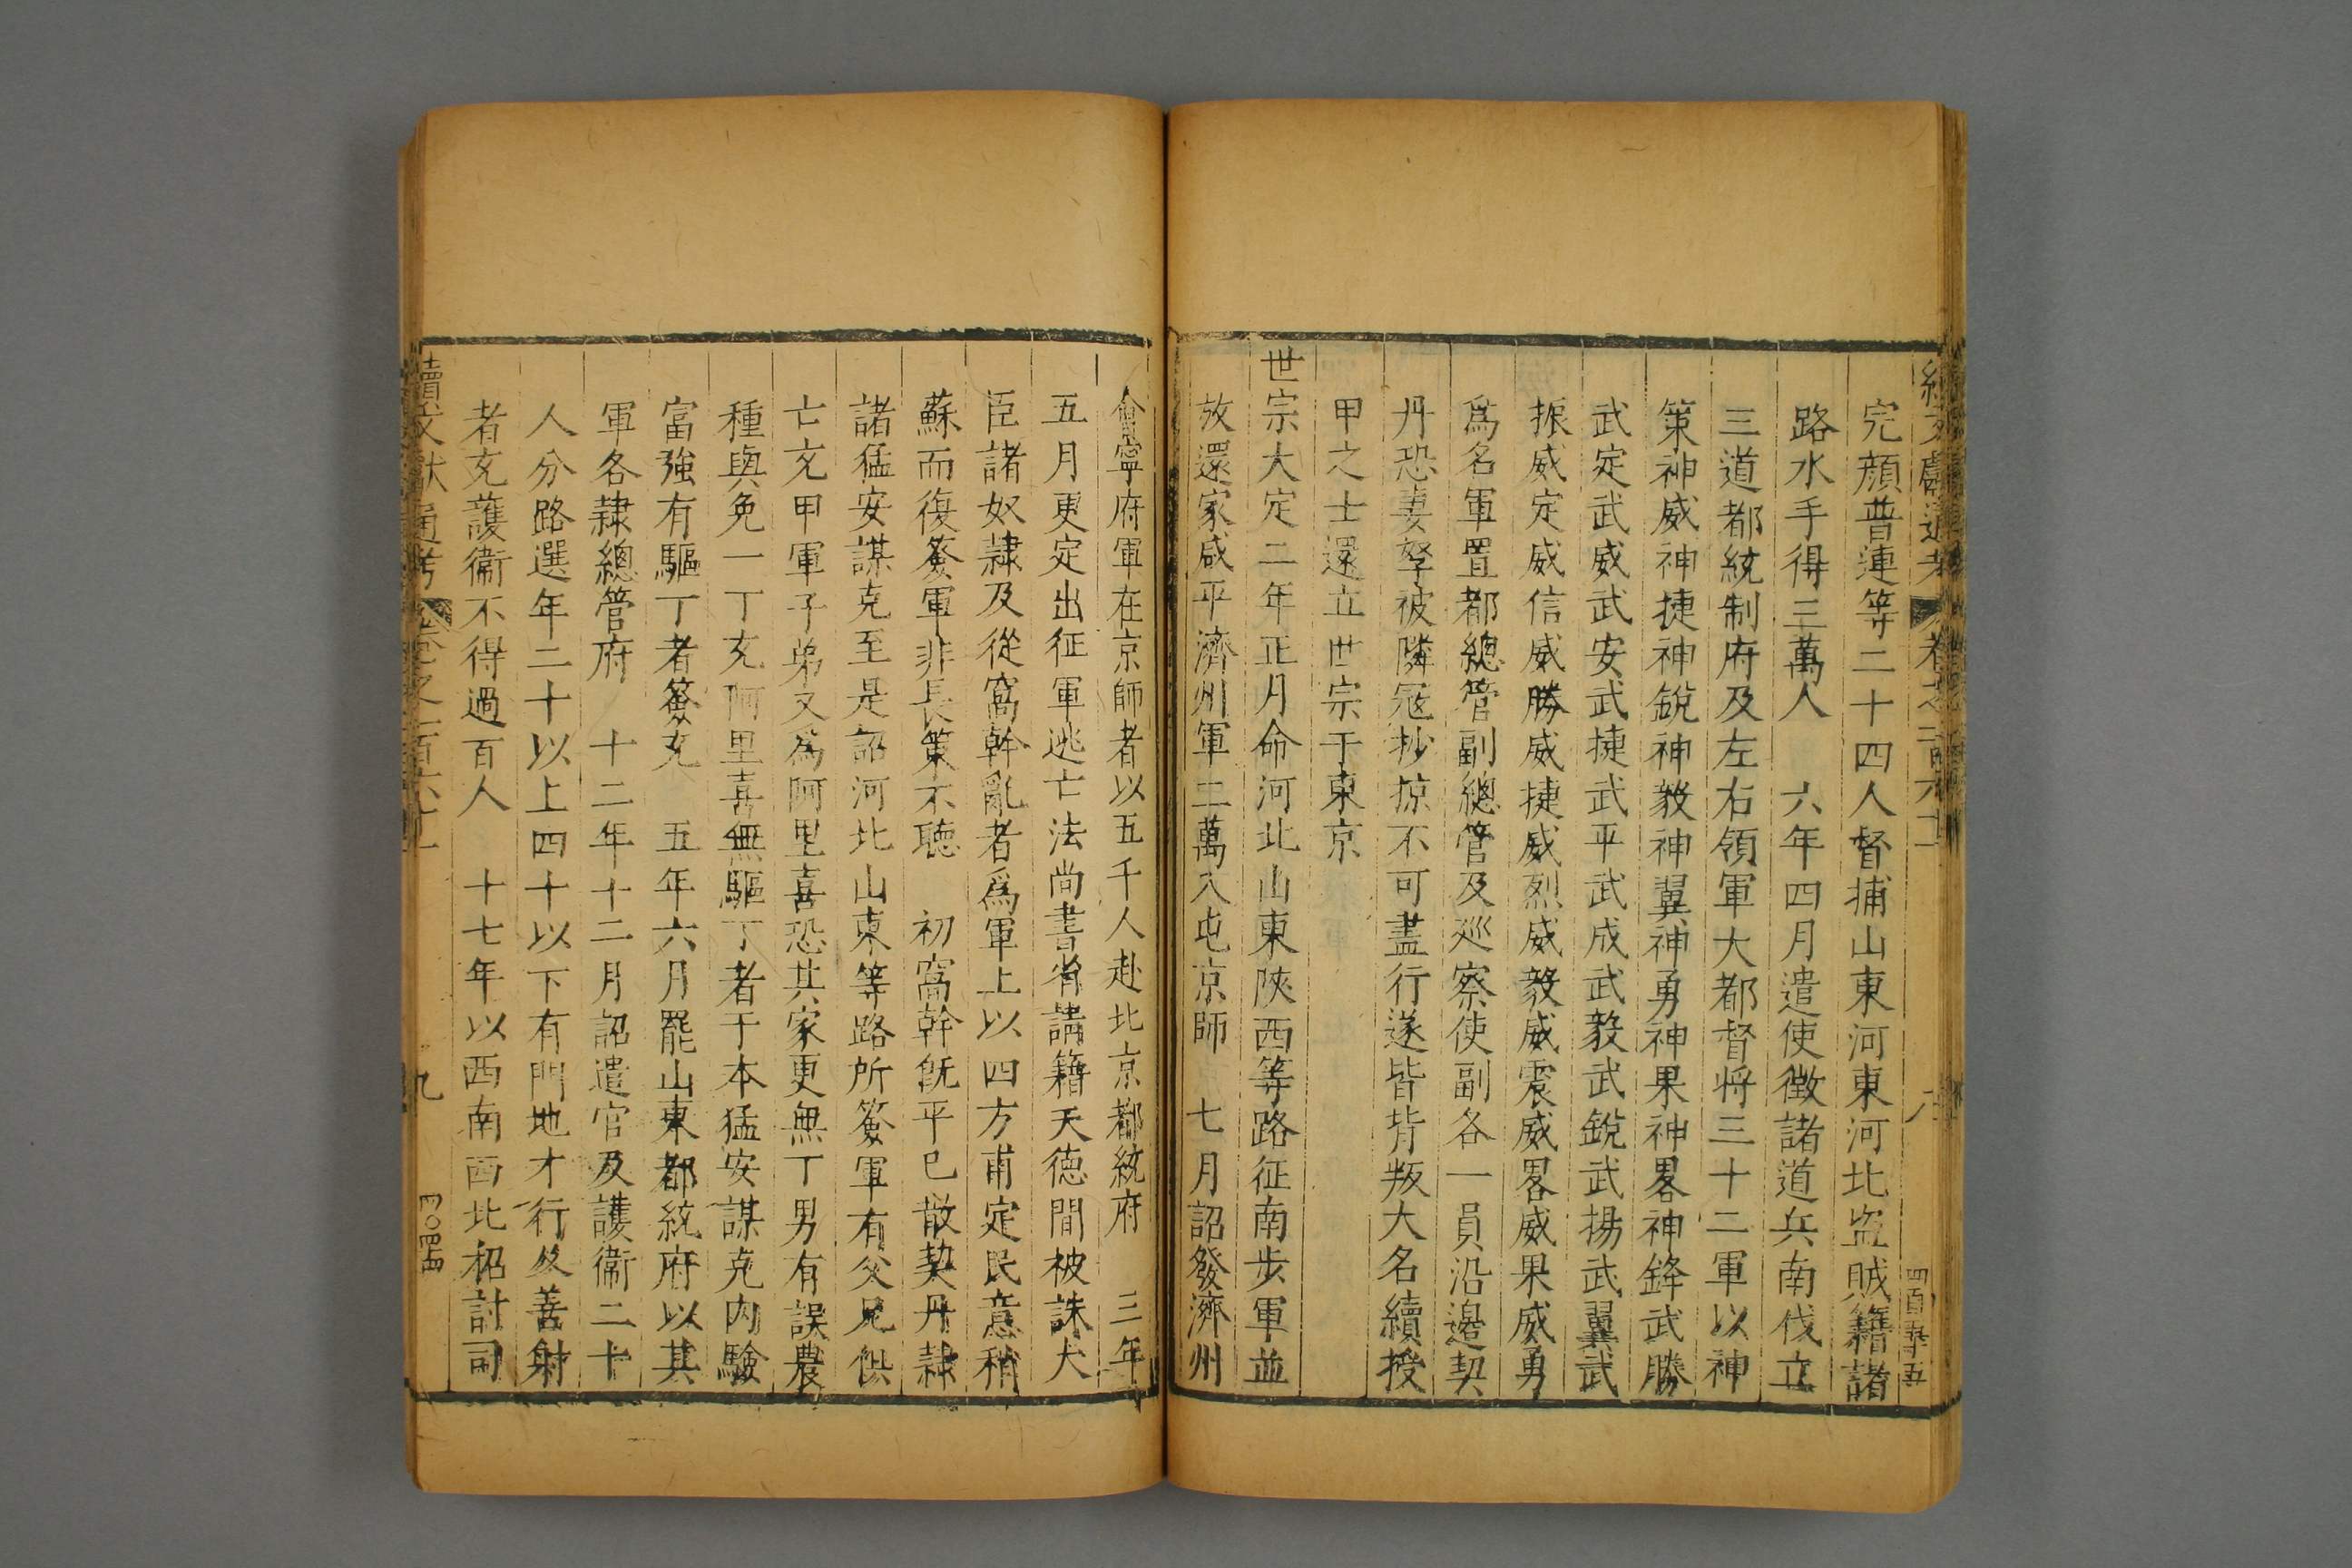 續文獻通考 卷之一百六十二 八 四百五十五
完顔普連等二十四人督捕山東河東河北盜賊籍諸
路水手得三萬人 六年四月遣使徵諸道兵南伐立
三道都統制府及左右領軍大都督将三十二軍以神
策神威神捷神銳神毅神翼神勇神果神畧神鋒武勝
武定武威武安武捷武平武成武毅武銳武揚武翼武
振威定威信威勝威捷威烈威毅威震威畧威果威勇
爲名軍置都總管副總管及廵察使副各一員沿邉契
丹恐妻孥被隣冦抄掠不可盡行遂皆背叛大名續授
甲之士還立世宗于東京
世宗大定二年正月命河北山東陝西等路征南步軍並
放還家咸平濟州軍二萬入屯京師 七月詔發濟州
會寧府軍在京師者以五千人赴北京都統府 三年
五月更定出征軍逃亡法尚書省請籍天德間被誅大
臣諸奴隷及從窩幹亂者爲軍上以四方甫定民意稍
蘇而復簽軍非長策不聽 初窩幹旣平已散契丹隷
諸猛安謀克至是詔河北山東等路所簽軍有父兄俱
亡充甲軍子弟又爲阿里喜恐其家更無丁男有誤農
種與免一丁充阿里喜無驅丁者于本猛安謀克内驗
富強有驅丁者簽充 五年六月罷山東都統府以其
軍各隷總管府 十二年十二月詔遣官及護衛二十
人分路選年二十以上四十以下有門地才行及善射
者充護衞不得過百人 十七年以西南西北招討司
續文獻通考 卷之一百六十二 九